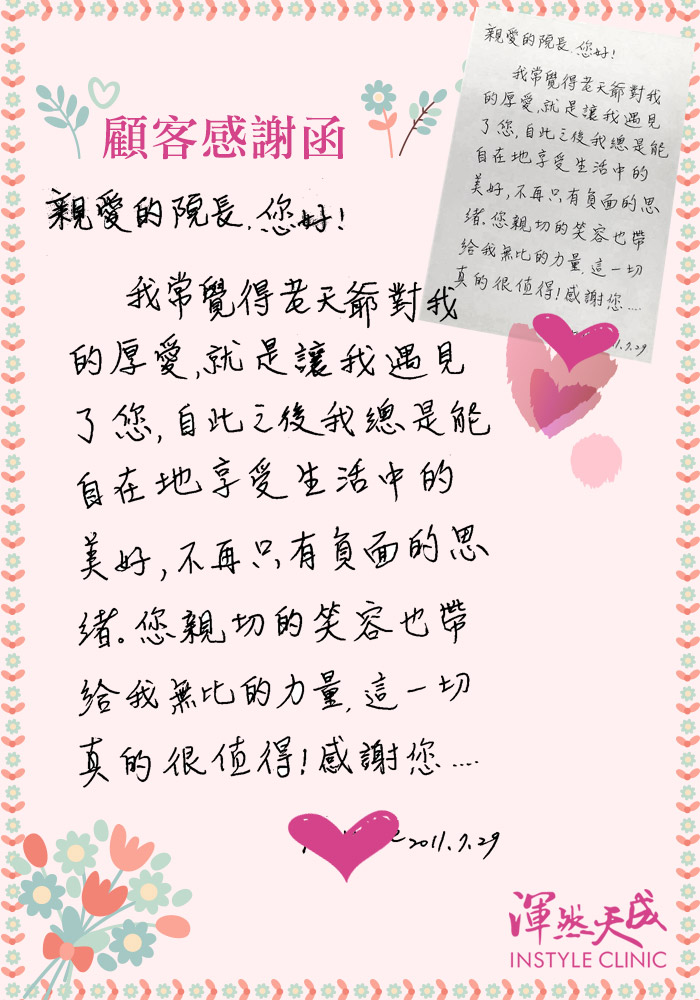 顧客感謝函
親愛的院長，您好！
我常覺得老天爺對我
的厚愛，就是讓我遇見
了您，自此之後我總是能
自在地享受生活中的
美好，不再只有負面的思
緒。您親切的笑容也帶
給我無比的力量，這一切
真的很值得！感謝您....
2011.7.29
親愛的院長，您好！
我常覺得老天爺對我
的厚愛，就是讓我遇見
了您，自此之後我總是能
自在地享受生活中的
美好，不再只有負面的思
緒。您親切的笑容也帶
給我無比的力量，這一切
真的很值得！感謝您....
1.7.29
渾然天成
INSTYLE CLINIC